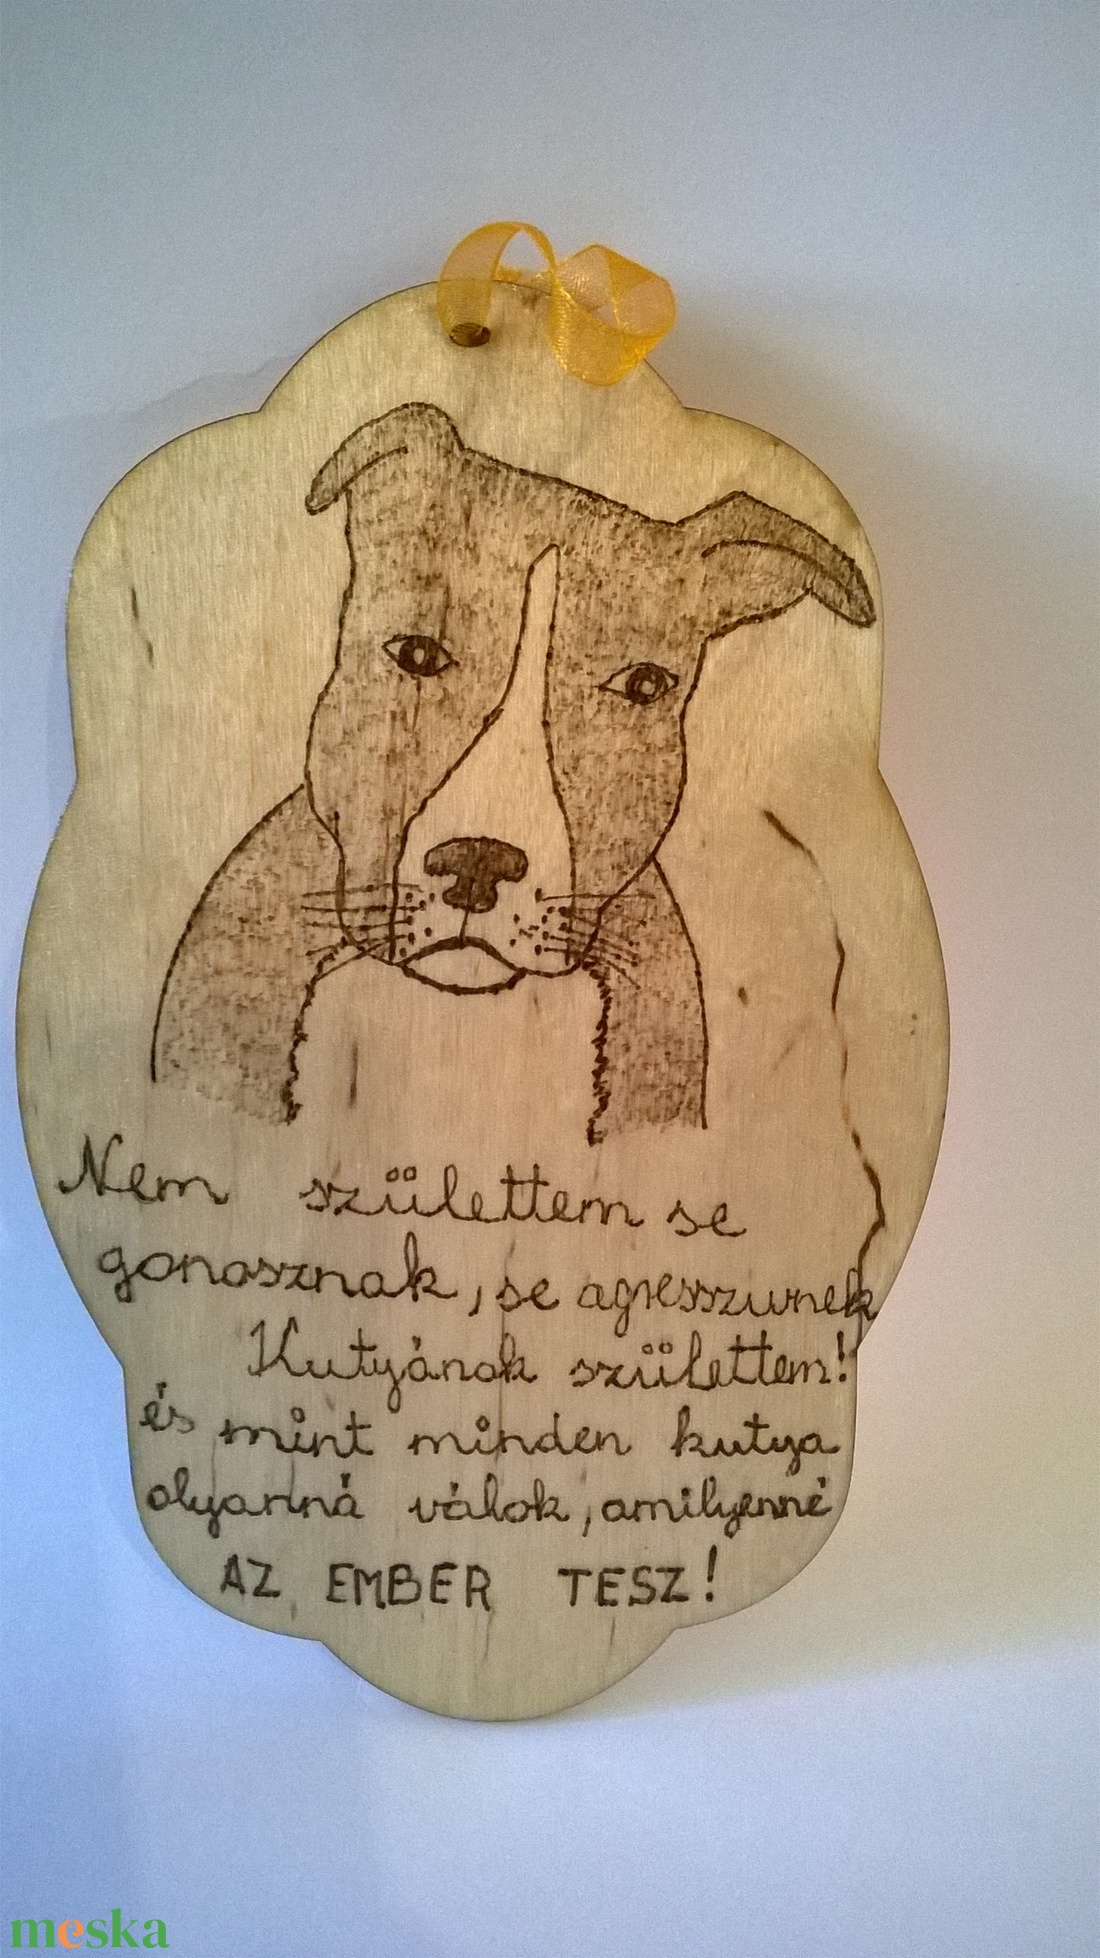 Nem születtem se
gonosznak, se agresszivnek
Kutyának születtem!
és mint minden kutya
olyanná válok, amilyenné
AZ EMBER TESZ!
meska